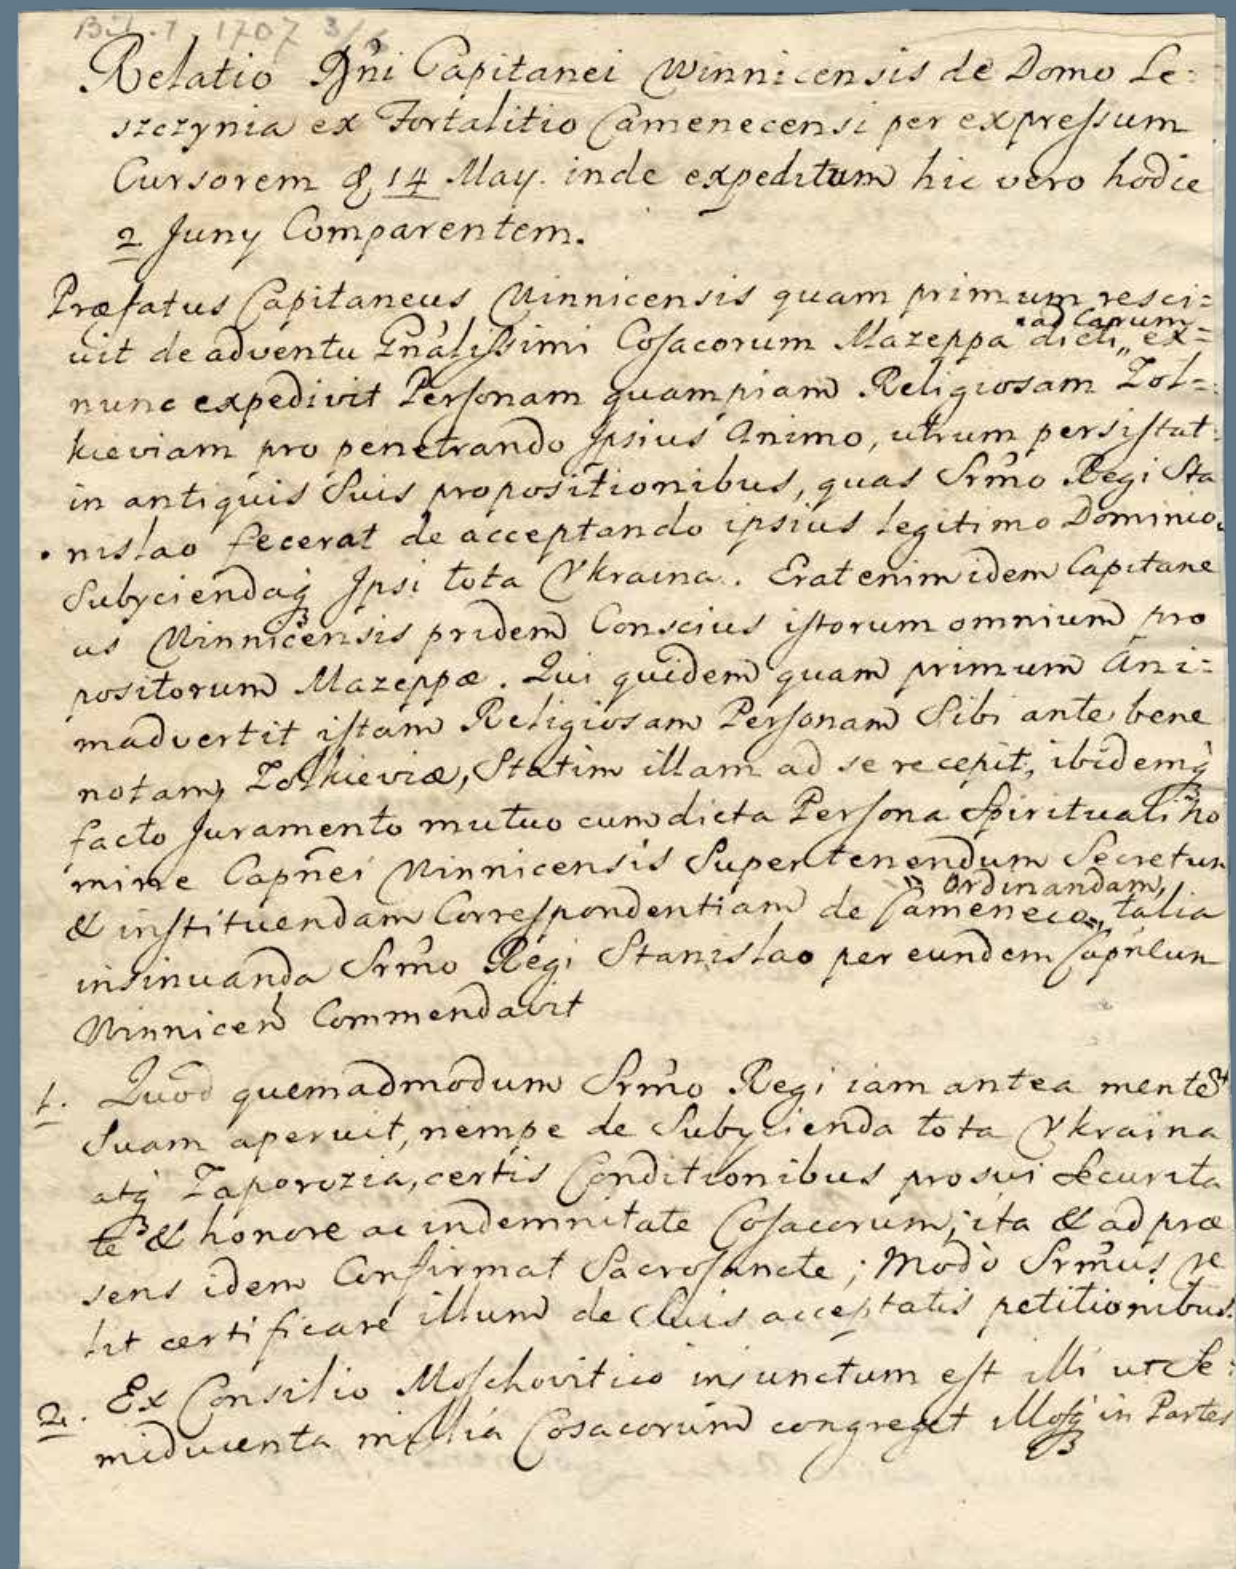 Bil. 1707 3/6
Relatio Dn̄i Capitanei Winnicensis de Domo Le:
szczynia ex Fortalitio Camenecensi per expressum
Cursorem d. 14 May. inde expeditum hic vero hodie
2 Juny Comparentem.
Præfatus Capitaneus Winnicensis quam primum resci=
vit de adventu Gn̄alissimi Cosacorum Mazeppa dicti
ad Carum
ex=
nunc expedivit Personam quampiam Religiosam Zol=
kieviam pro penetrando Ipsius Animo, utrum persistat
in antiquis Suis propositionibus, quas Srm̄o Regi Sta
nislao fecerat de acceptando ipsius legitimo Dominio,
Subyciendaq̨ Ipsi tota Ukraina. Erat enim idem Capitane
us Winnicensis pridem Conscius istorum omnium pro
positorum Mazeppæ. Qui quidem quam primum Ani=
madvertit istam Religiosam Personam Sibi ante bene
notam, Zolkieviæ, Statim illam ad se recepit, ibidemq̨
facto Juramento mutuo cum dicta Persona Spirituali no
mine Capn̄ei Winnicensis Super tenendum Secretum
& instituendam Correspondentiam de Cameneco
Ordinandam,
talia
insinuanda Srm̄o Regi Stanislao per eundem Capn̄eum
Winnicen̄ Commendavit
1. Quod quemadmodum Srm̄o Regi iam antea mente
Suam aperuit, nempe de Subycienda tota Ukraina
atq̨ Zaporozia, certis Conditionibus pro sui Securita
te & honore ac indemnitate Cosacorum; ita & ad præ
sens idem Confirmat Sacrosancte; Modò Srm̄us ve
lit certificare illum de Suis acceptatis petitionibus.
2. Ex Consilio Moschovitico injunctum est illi ut Se:
miducenta millia Cosacorum congreget illosq̨ in Partes